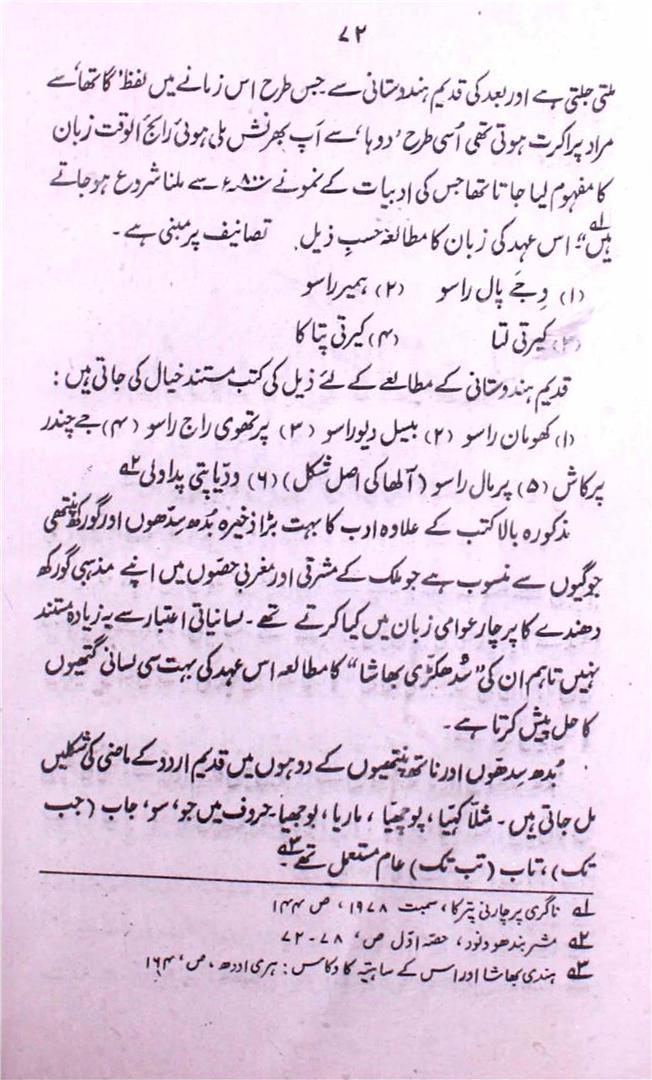 ۷۲
ملتی جلتی ہے اور بعد کی قدیم ہندوستانی سے جس طرح اس زمانے میں لفظ 'گاتھا' سے
مراد پراکرت ہوتی تھی اُسی طرح 'دوہا' سے اَپ بھرنش ملی ہوئی رائج الوقت زبان
کا مفہوم لیا جاتا تھا جس کی ادبیات کے نمونے ۸۰۰ء سے ملنا شروع ہو جاتے
ہیں"۔ لہ اس عہد کی زبان کا مطالعہ حسبِ ذیل تصانیف پر مبنی ہے۔
(۱) وِجَے پال راسو (۲) ہمیر راسو
(۳) کیرتی لتا (۴) کیرتی پتاکا
قدیم ہندوستانی کے مطالعے کے لئے ذیل کی کتب مستند خیال کی جاتی ہیں:
(۱) کھومان راسو (۲) بیسل دیو راسو (۳) پرتھوی راج راسو (۴) جے چندر
پرکاش (۵) پرمال راسو (آلھا کی اصل شکل) (۶) ودّیا پتی پداولی ۲ہ
مذکورہ بالا کتب کے علاوہ ادب کا بہت بڑا ذخیرہ بُدھ سِدّھوں اور گورکھ پنتھی
جوگیوں سے منسوب ہے جو ملک کے مشرقی اور مغربی حصّوں میں اپنے مذہبی گورکھ
دھندے کا پرچار عوامی زبان میں کیا کرتے تھے۔ لسانیاتی اعتبار سے یہ زیادہ مستند
نہیں تاہم ان کی "سُدھکڑی بھاشا" کا مطالعہ اس عہد کی بہت سی لسانی گتھیوں
کا حل پیش کرتا ہے۔
بُدھ سِدھوں اور ناتھ پنتھیوں کے دوہوں میں قدیم اردو کے ماضی کی شکلیں
مل جاتی ہیں۔ مثلاً کہیّا، پوچھیّا، ماریا، بوجھیا۔ حروف میں جو، سو، جاب (جب
تک)، تاب (تب تک) عام مستعمل تھے۔ ۳ہ
۱ہ ناگری پرچارنی پترکا، سمبت ۱۹۷۸، ص ۱۴۴
۲ہ مشر بندھو ونود، حصّہ اوّل ص، ۷۸-۷۲
۳ہ ہندی بھاشا اور اس کے ساہتیہ کا وکاس: ہری اودھ، ص، ۱۶۴